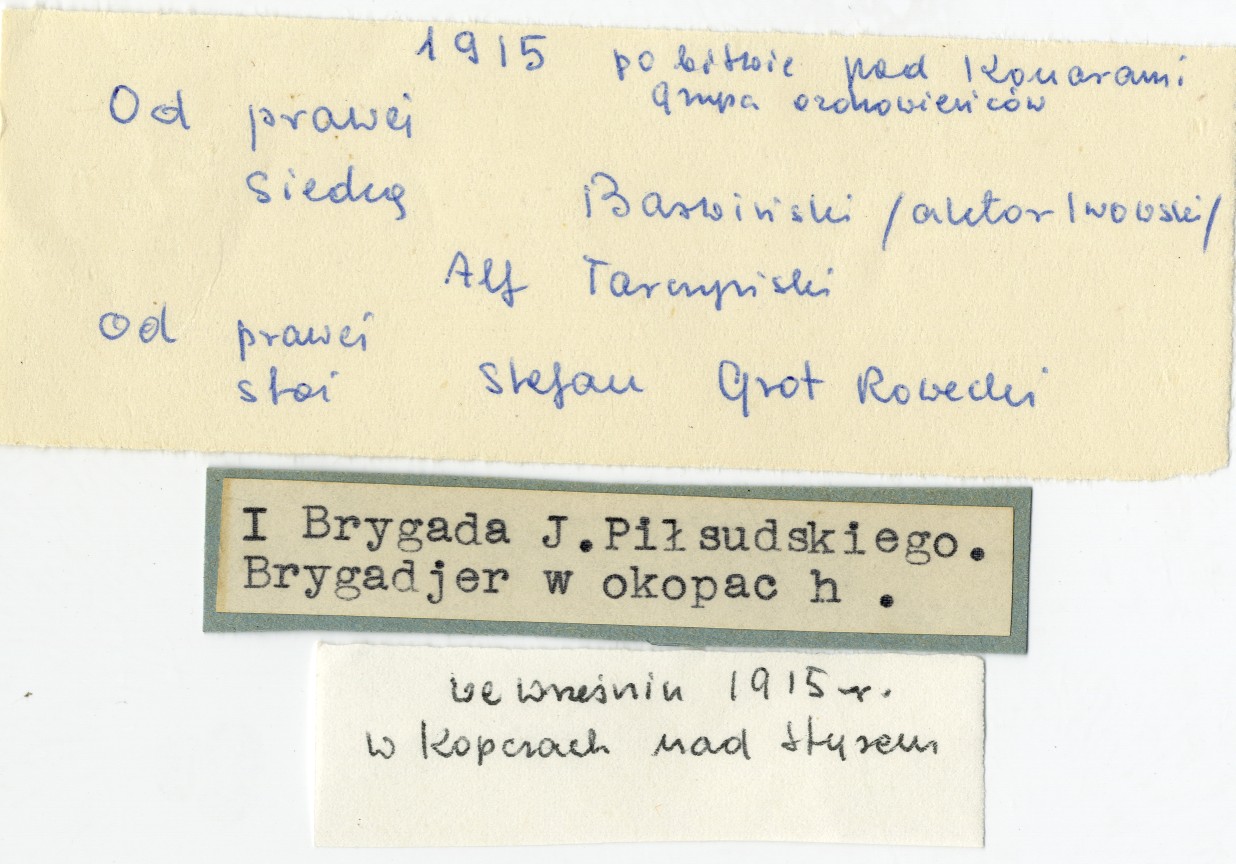 1915 po bitwie pod Konarami
grupa ozdrowieńców
Od prawej
siedzą Barwiński /aktor lwowski/
Alf Tarczyński
Od prawej
stoi Stefan Grot Rowecki
I Brygada J.Piłsudskiego.
Brygadjer w okopac h .
we wrześniu 1915 r.
w Kopczach nad Styrem